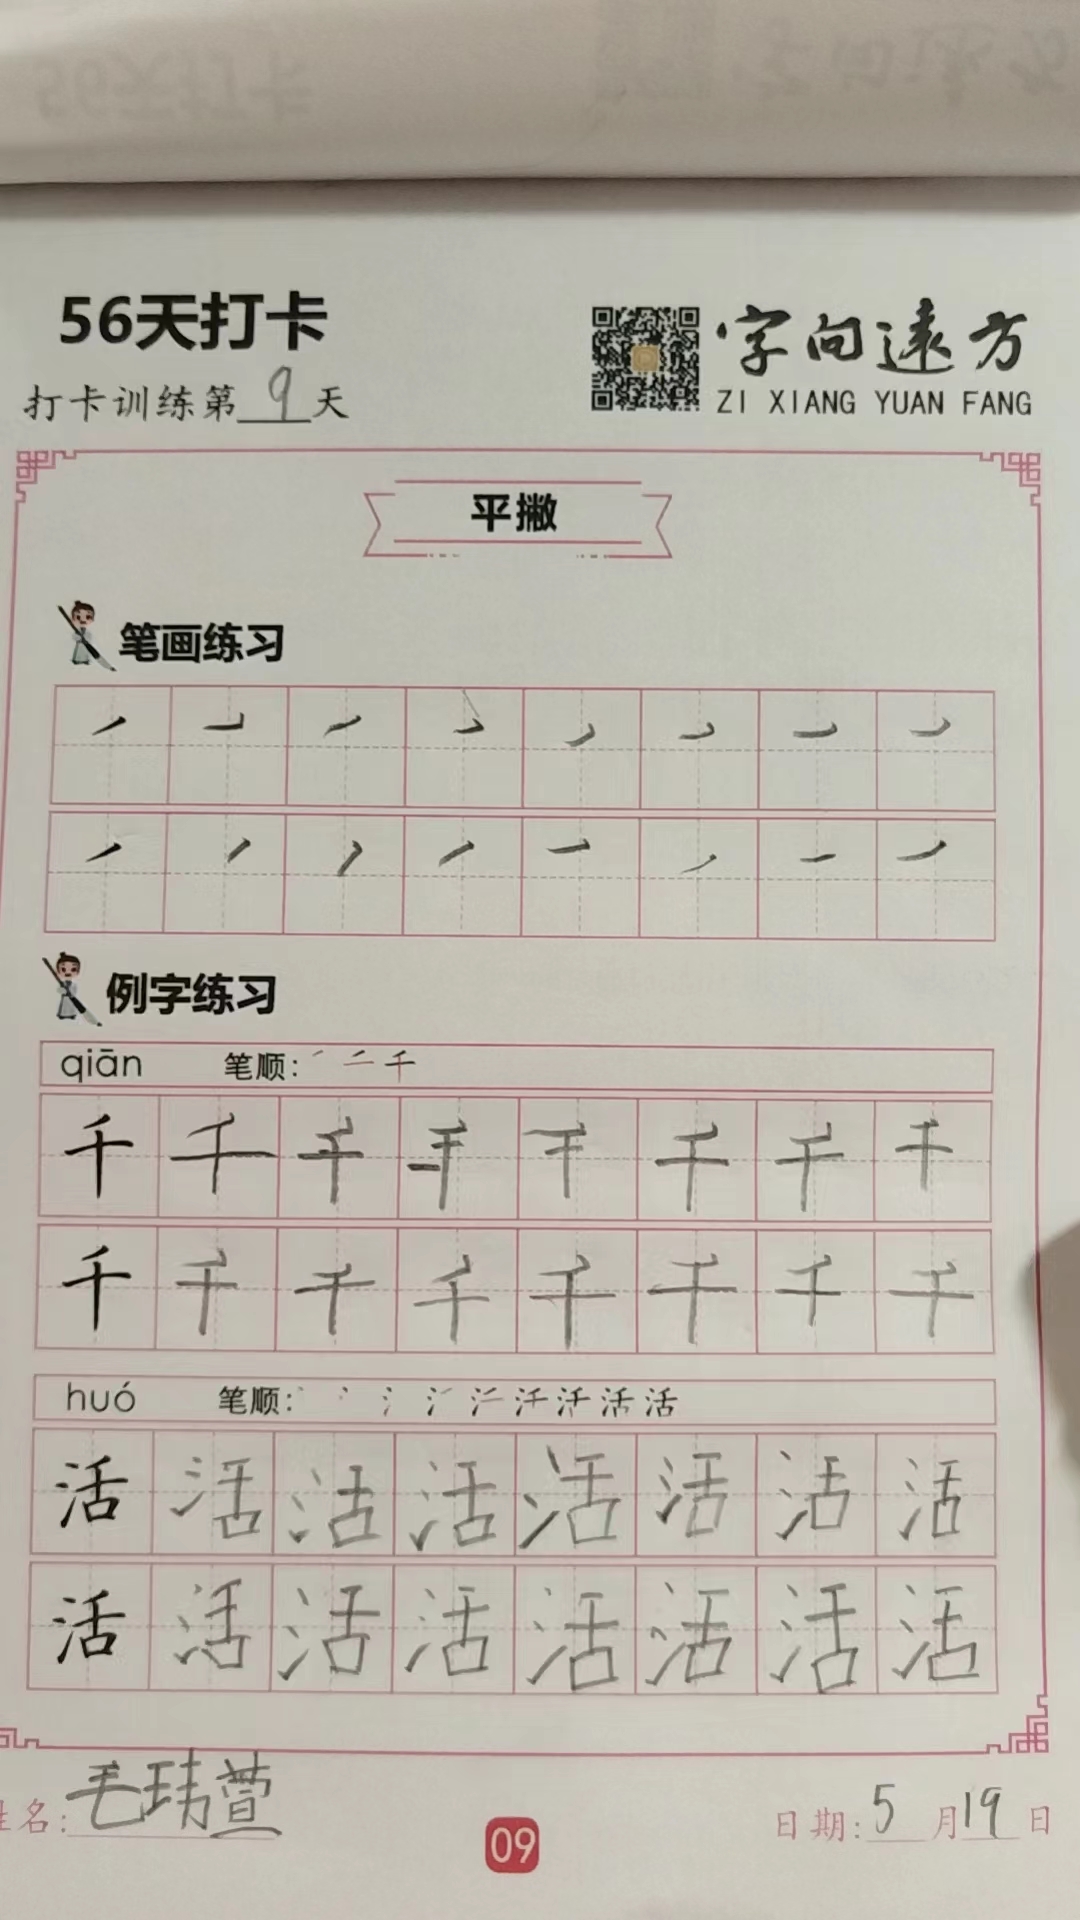 56天打卡
字向遠方
打卡训练第9天
ZI XIANG YUAN FANG
平撇
笔画练习
例字练习
qiān 笔顺: 千
千 千 千 千 千 千 千 千
千 千 千 千 千 千 千 千
huó 笔顺: 活 活
活 活 活 活 活 活 活 活
活 活 活 活 活 活 活 活
姓名: 毛玮萱
09
日期: 5月19日